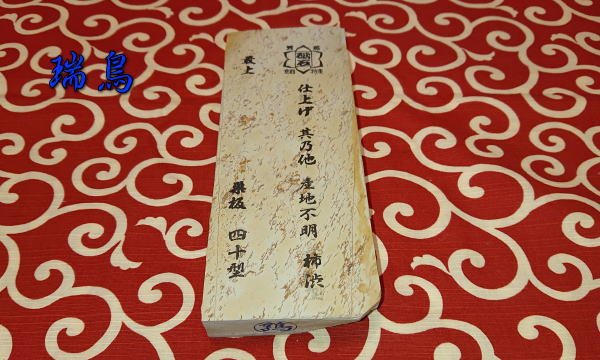 瑞鳥
砥石
仕上げ 其乃他 産地不明 柿渋
最上
巣板 四十型